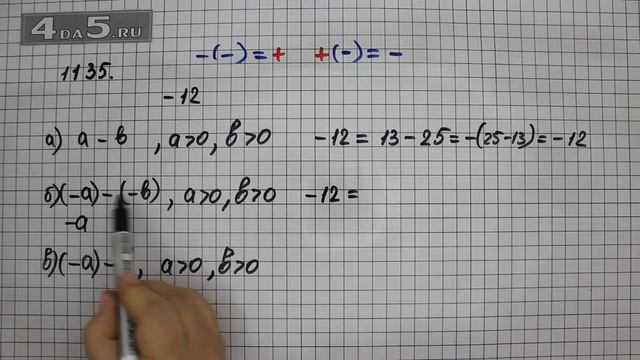 4DA5.RU
-(-)=+ +(-)=-
1135.
-12
а) a-b, a>0, b>0 -12 = 13-25=-(25-13)=-12
б) (-a)-(-b), a>0, b>0 -12 =
-a
в) (-a)- , a>0, b>0